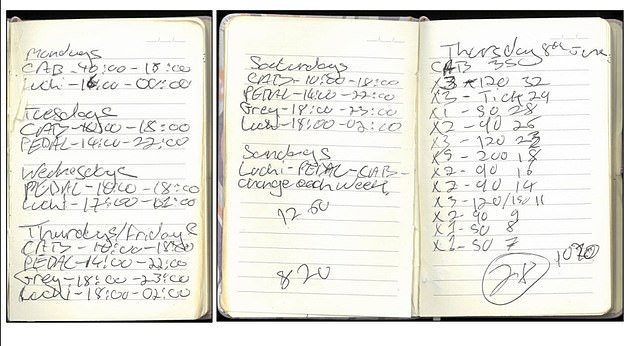 Mondays
CAB - 10:00 - 18:00
Luchi - 16:00 - 00:00
Tuesdays
CAB - 10:00 - 18:00
PEDAL - 14:00 - 22:00
Wednesdays
PEDAL - 10:00 - 18:00
Luchi - 17:00 - 01:00
Thursdays/Fridays
CAB - 10:00 - 18:00
PEDAL - 14:00 - 22:00
Grey - 18:00 - 23:00
Luchi - 18:00 - 02:00
Saturdays
CAB - 10:00 - 18:00
PEDAL - 14:00 - 22:00
Grey - 18:00 - 23:00
Luchi - 18:00 - 02:00
Sundays
Luchi - PEDAL - CAB -
change each week
12 60
820
Thursday 8th June
CAB 350
X3 - 120 32
X3 - Tick 29
X1 - 50 28
X2 - 90 26
X3 - 120 23
X5 - 200 18
X2 - 90 16
X2 - 90 14
X3 - 120/150 11
X2 - 90 9
X1 - 50 8
X1 - 50 7
28